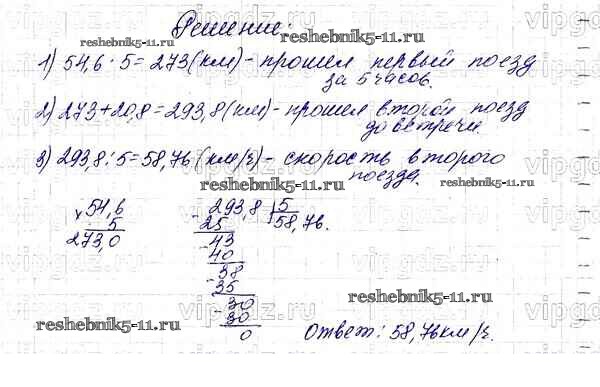 Решение:
1) 54,6 · 5 = 273 (км) - прошел первый поезд
за 5 часов.
2) 273 + 20,8 = 293,8 (км) - прошел второй поезд
до встречи.
3) 293,8 : 5 = 58,76 (км/ч) - скорость второго
поезда.
× 54,6
5
273,0
- 293,8 | 5
25 58,76.
- 43
40
- 38
35
- 30
- 30
0
Ответ: 58,76 км/ч.
reshebnik5-11.ru
reshebnik5-11.ru
reshebnik5-11.ru
reshebnik5-11.ru
reshebnik5-11.ru
reshebnik5-11.ru
vipgdz.ru
vipgdz.ru
vipgdz.ru